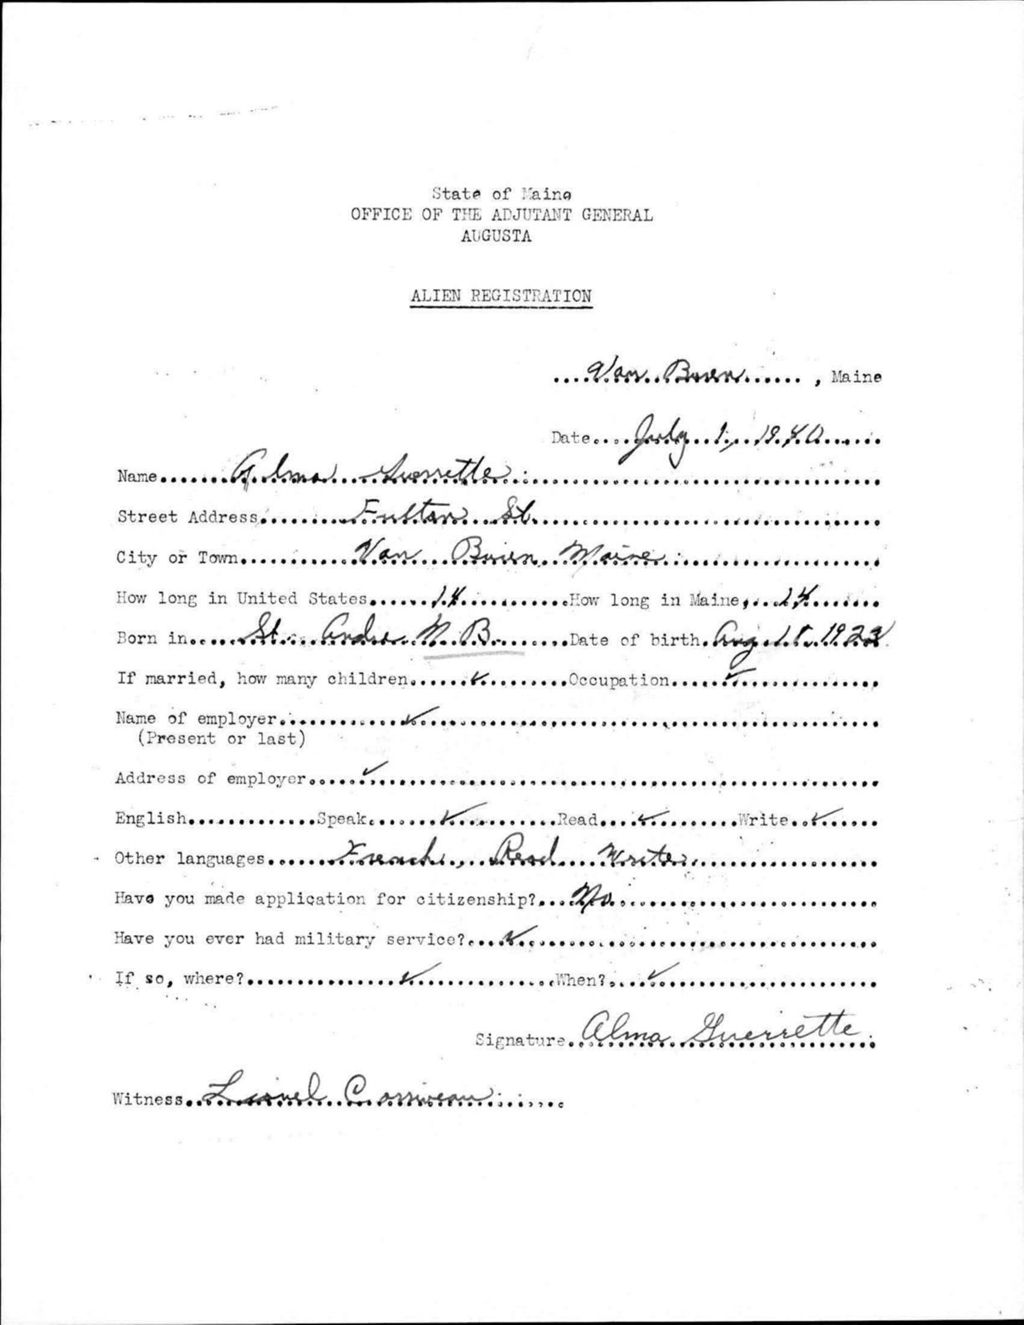 State of Maine
OFFICE OF THE ADJUTANT GENERAL
AUGUSTA
ALIEN REGISTRATION
Van Buren, Maine
Date July 1, 1940
Name Alma Guerrette
Street Address Fulton St.
City or Town Van Buren, Maine
How long in United States 14 How long in Maine 14
Born in St. Andre N. B. Date of birth Aug 15 1923
If married, how many children ✓ Occupation ✓
Name of employer ✓
(Present or last)
Address of employer ✓
English Speak ✓ Read ✓ Write ✓
Other languages French, Read Write
Have you made application for citizenship? No
Have you ever had military service? ✓
If so, where? ✓ When? ✓
Signature Alma Guerrette
Witness Lionel